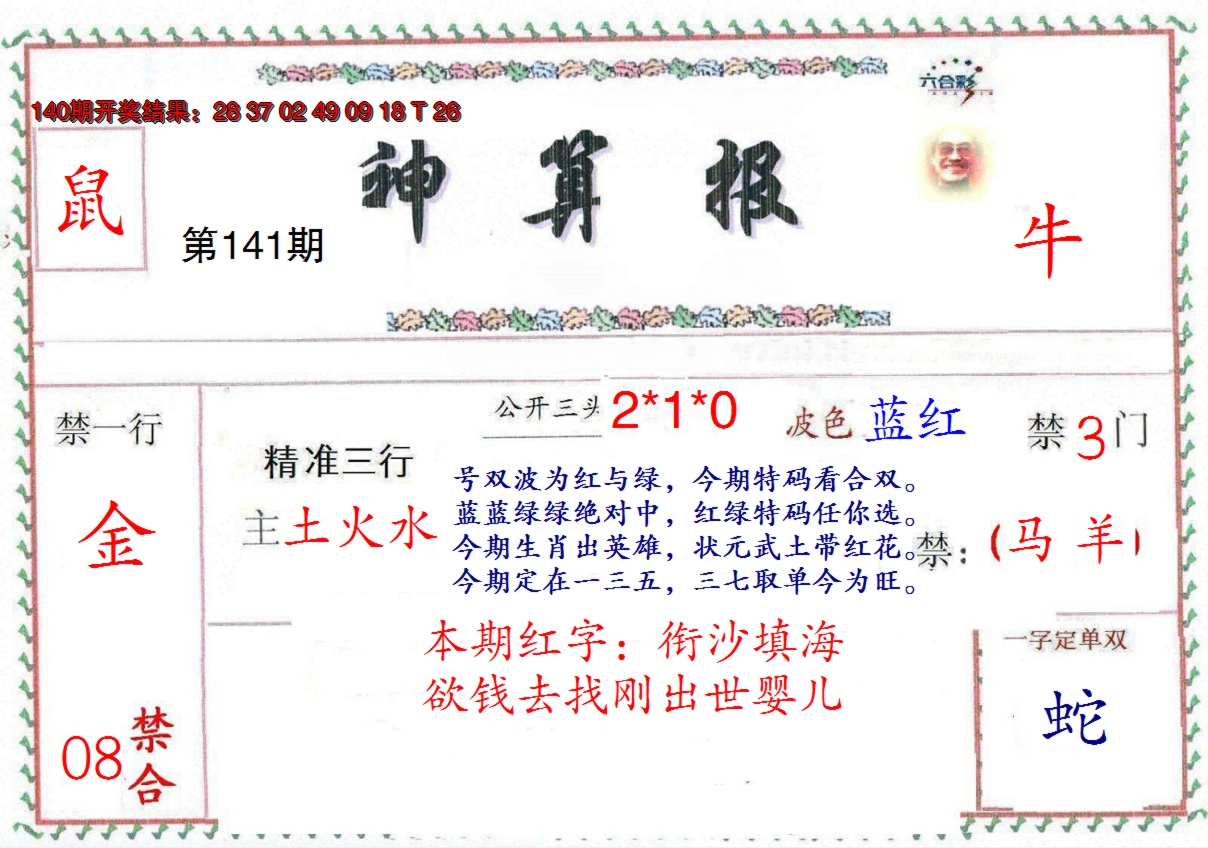 六合彩
140期开奖结果：28 37 02 49 09 18 T 26
神算报
鼠
第141期
牛
禁一行
金
08
禁合
精准三行
主土火水
公开三头 2*1*0
波色 蓝红
禁3门
号双波为红与绿，今期特码看合双。
蓝蓝绿绿绝对中，红绿特码任你选。
今期生肖出英雄，状元武士带红花。
今期定在一三五，三七取单今为旺。
禁：（马 羊）
本期红字：衔沙填海
欲钱去找刚出世婴儿
一字定单双
蛇